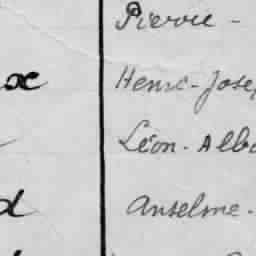 Pierre -
x Henri - Jose
Léon - Alb
d Anselme -